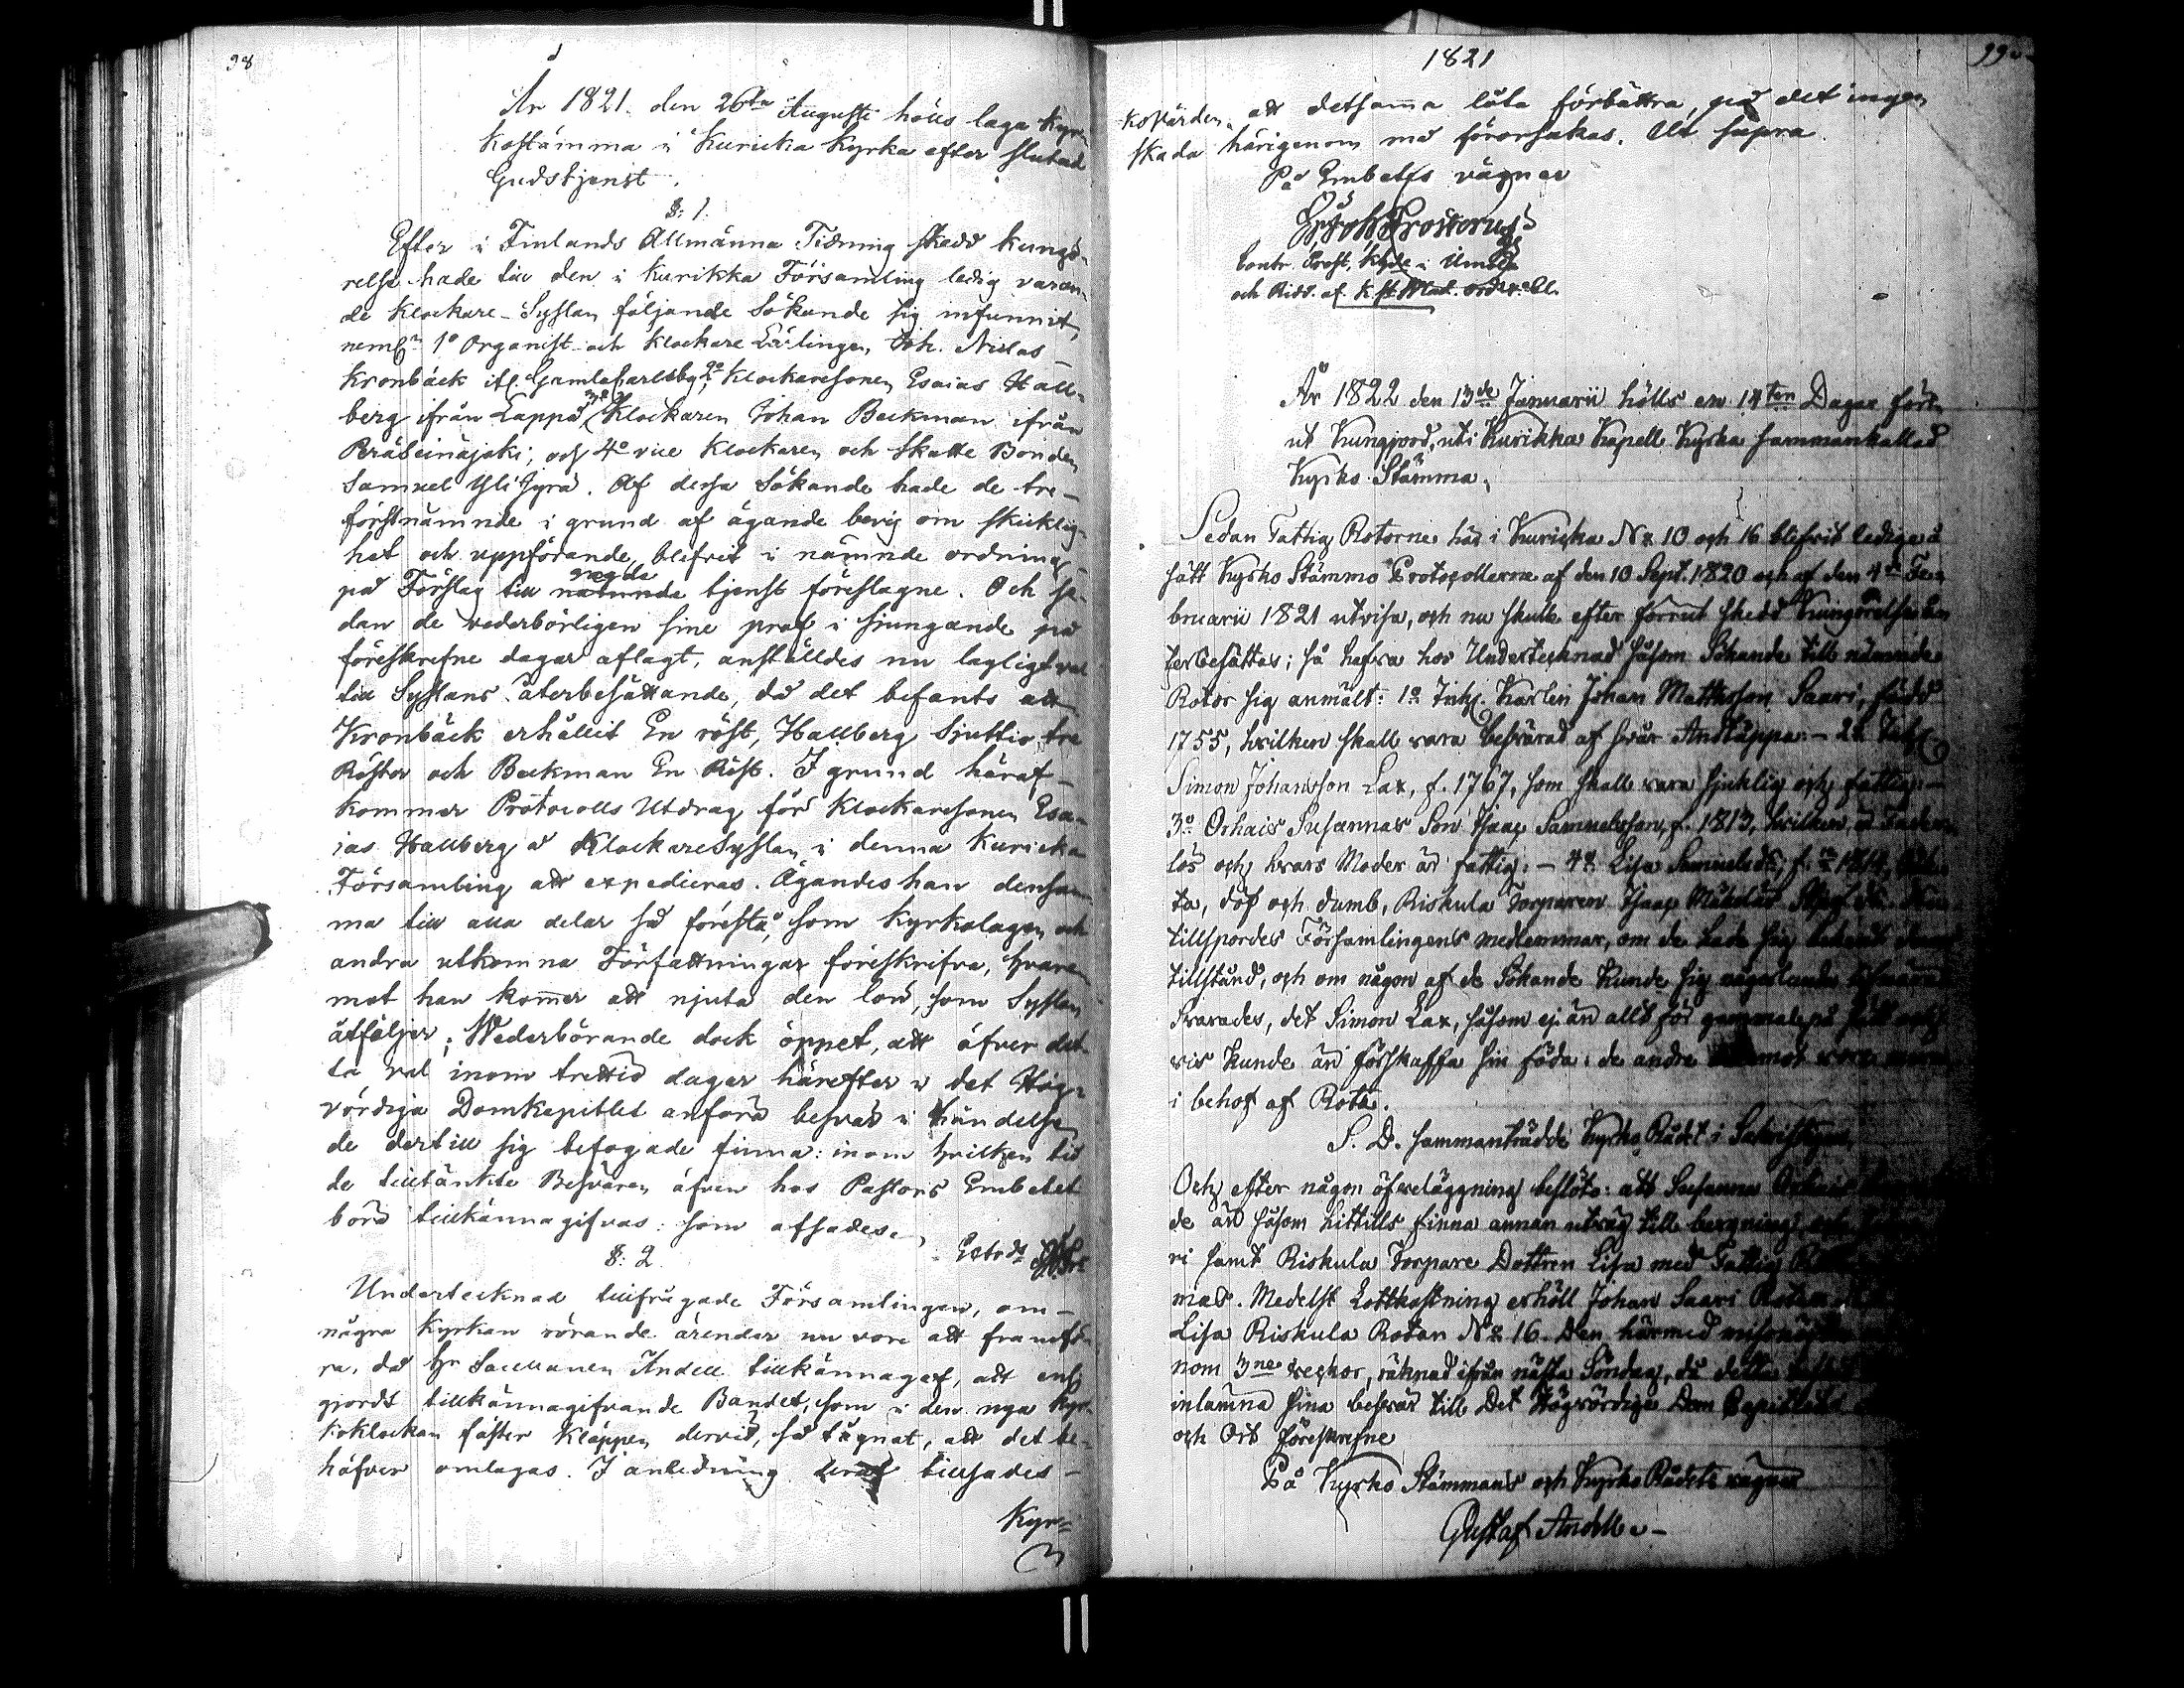 98
År 1821. den 26ta Augusti hölls laga Kyr-
kostämma i Kuricka Kyrka efter slutad
Gudstjenst.
§: 1.
Efter i Finlands Allmänna Tidning skedd kungö-
relse hade till den i Kurikka Församling ledig varan-
de Klockare-Sysslan följande Sökande sig infunnit,
neml:n 1o Organist- och Klockare Lärlingen Joh. Niclas
Kronbäck ifr. Gamlakarleby, 2o Klockaresonen Esaias Hall-
berg ifrån Lappo 3o Klockaren Johan Beckman ifrån
Peräseinäjoki; och 4o vice Klockaren och Skatte Bonden
Samuel Yli Jyrä. Af dessa Sökande hade de tre-
förstnämnde i grund af ägande bevis om skicklig-
het och uppförande, blefvit i nämnde ordning
på Förslag till sagde tjenst föreslagne. Och se-
dan de vederbörligen sine prof i sjungande på
föreskrefne dagar aflagt, anställdes nu lagligt val
till Sysslans återbesättande, då det befants att
Kronbäck erhållit En röst, Hallberg Sjuttio tre
Röster och Beckman En Röst. I grund häraf-
kommer Protocolls Utdrag för Klockaresonen Esa-
ias Hallberg å KlockareSysslan i denna Kuricka
Församling att expedieras. Ägandes han densam-
ma till alla delar så förestå, som Kyrkolagen och
andra utkomna Författningar föreskrifva, hvare-
mot han kommer att njuta den lön, som Sysslan
åtföljer; Wederbörande dock öppet, att öfver det-
ta val inom trettio dagar härefter i det Hög-
vördiga Domkapitlet anföra besvär i händelse
de dertill sig befogade finna: inom hvilken tid
de tilltänkte Besvären äfven hos Pastors Embetet
böra tillkännagifvas: som afsades.
§: 2.
Undertecknad tillfrågade Församlingen, om-
några Kyrkan rörande ärender nu vore att framfö-
ra, då Hr Sacellanen Andell tillkännagaf, att enl.
gjordt tillkännagifvande Bandet, som i den nya Kyr-
koklockan fäster Kläppen dervid, så tågnat, att det be-
höfver omlagas. I anledning deraf tillsades-
Kyr-
1821
99
kovärden att detsamma låta förbättra, på det ingen
skada härigenom må förorsakas. Ut supra
På Embetets vägnar
Contr. Prost, Khde i Ilmola
och Ridd. af K. St. Wlad. ord. 4. Cl.
År 1822 den 13de Januarii hölls en 14ten Dagar för-
ut Kungjord, uti Kurikka Kapell Kyrka sammankallad
Kyrko Stämma.
Sedan Fattig Rotorne här i Kuricka No 10 och 16 blifvit lediga å
sätt Kyrko Stämmo Protocollerne af den 10 Sept. 1820 och af den 4de Fe-
bruarii 1821 utvisa, och nu skulle efter förrut skedd Kungörelse
terbesättas; så hafva hos Undertecknad såsom Sökande till nämnde
Rotor sig anmält: 1o Inhs. Karlen Johan Mattsson Saari, född
1755, hvilken skall vara besvärad af svår Andtäppa. - 2o Inhs.
Simon Johansson Lax, f. 1767, som skall vara sjuklig och fattig. -
3o Orhais Susannas Son Isaac Samuelsson, f. 1813, hvilken är Fader-
lös och hvars Moder är fattig. - 4o Lisa Samuelsdr, f.
ta, döf och dumb, Riskula Torparen Isaac
tillspordes Församlingens medlemmar, om de hade sig
tillstånd, och om någon af de Sökande kunde sig någorlunda
Svarades, det Simon Lax, såsom ej än allt för gammal, på
vis kunde än förskaffa sin föda: de andre
i behof af Rota.
S. D. sammanträdde Kyrko Rådet i Sakristigan,
Och efter någon öfverläggning beslöts: att Susanna
de än såsom hittills finna annan utväg till bergning
ri samt Riskula Torpare Dottren Lisa med Fattig
nas. Medelst Lottkastning erhöll Johan Saari Rotan
Lisa Riskula Rotan No 16. Den härmed missnöjde
nom 3ne veckor, räknad ifrån nästa Söndag, då detta
inlämna sina besvär till Det Högvördiga Dom Capitlet
och Ort föreskrefne
På Kyrko Stämmans och Kyrko Rådets vägnar
Gustaf Andell